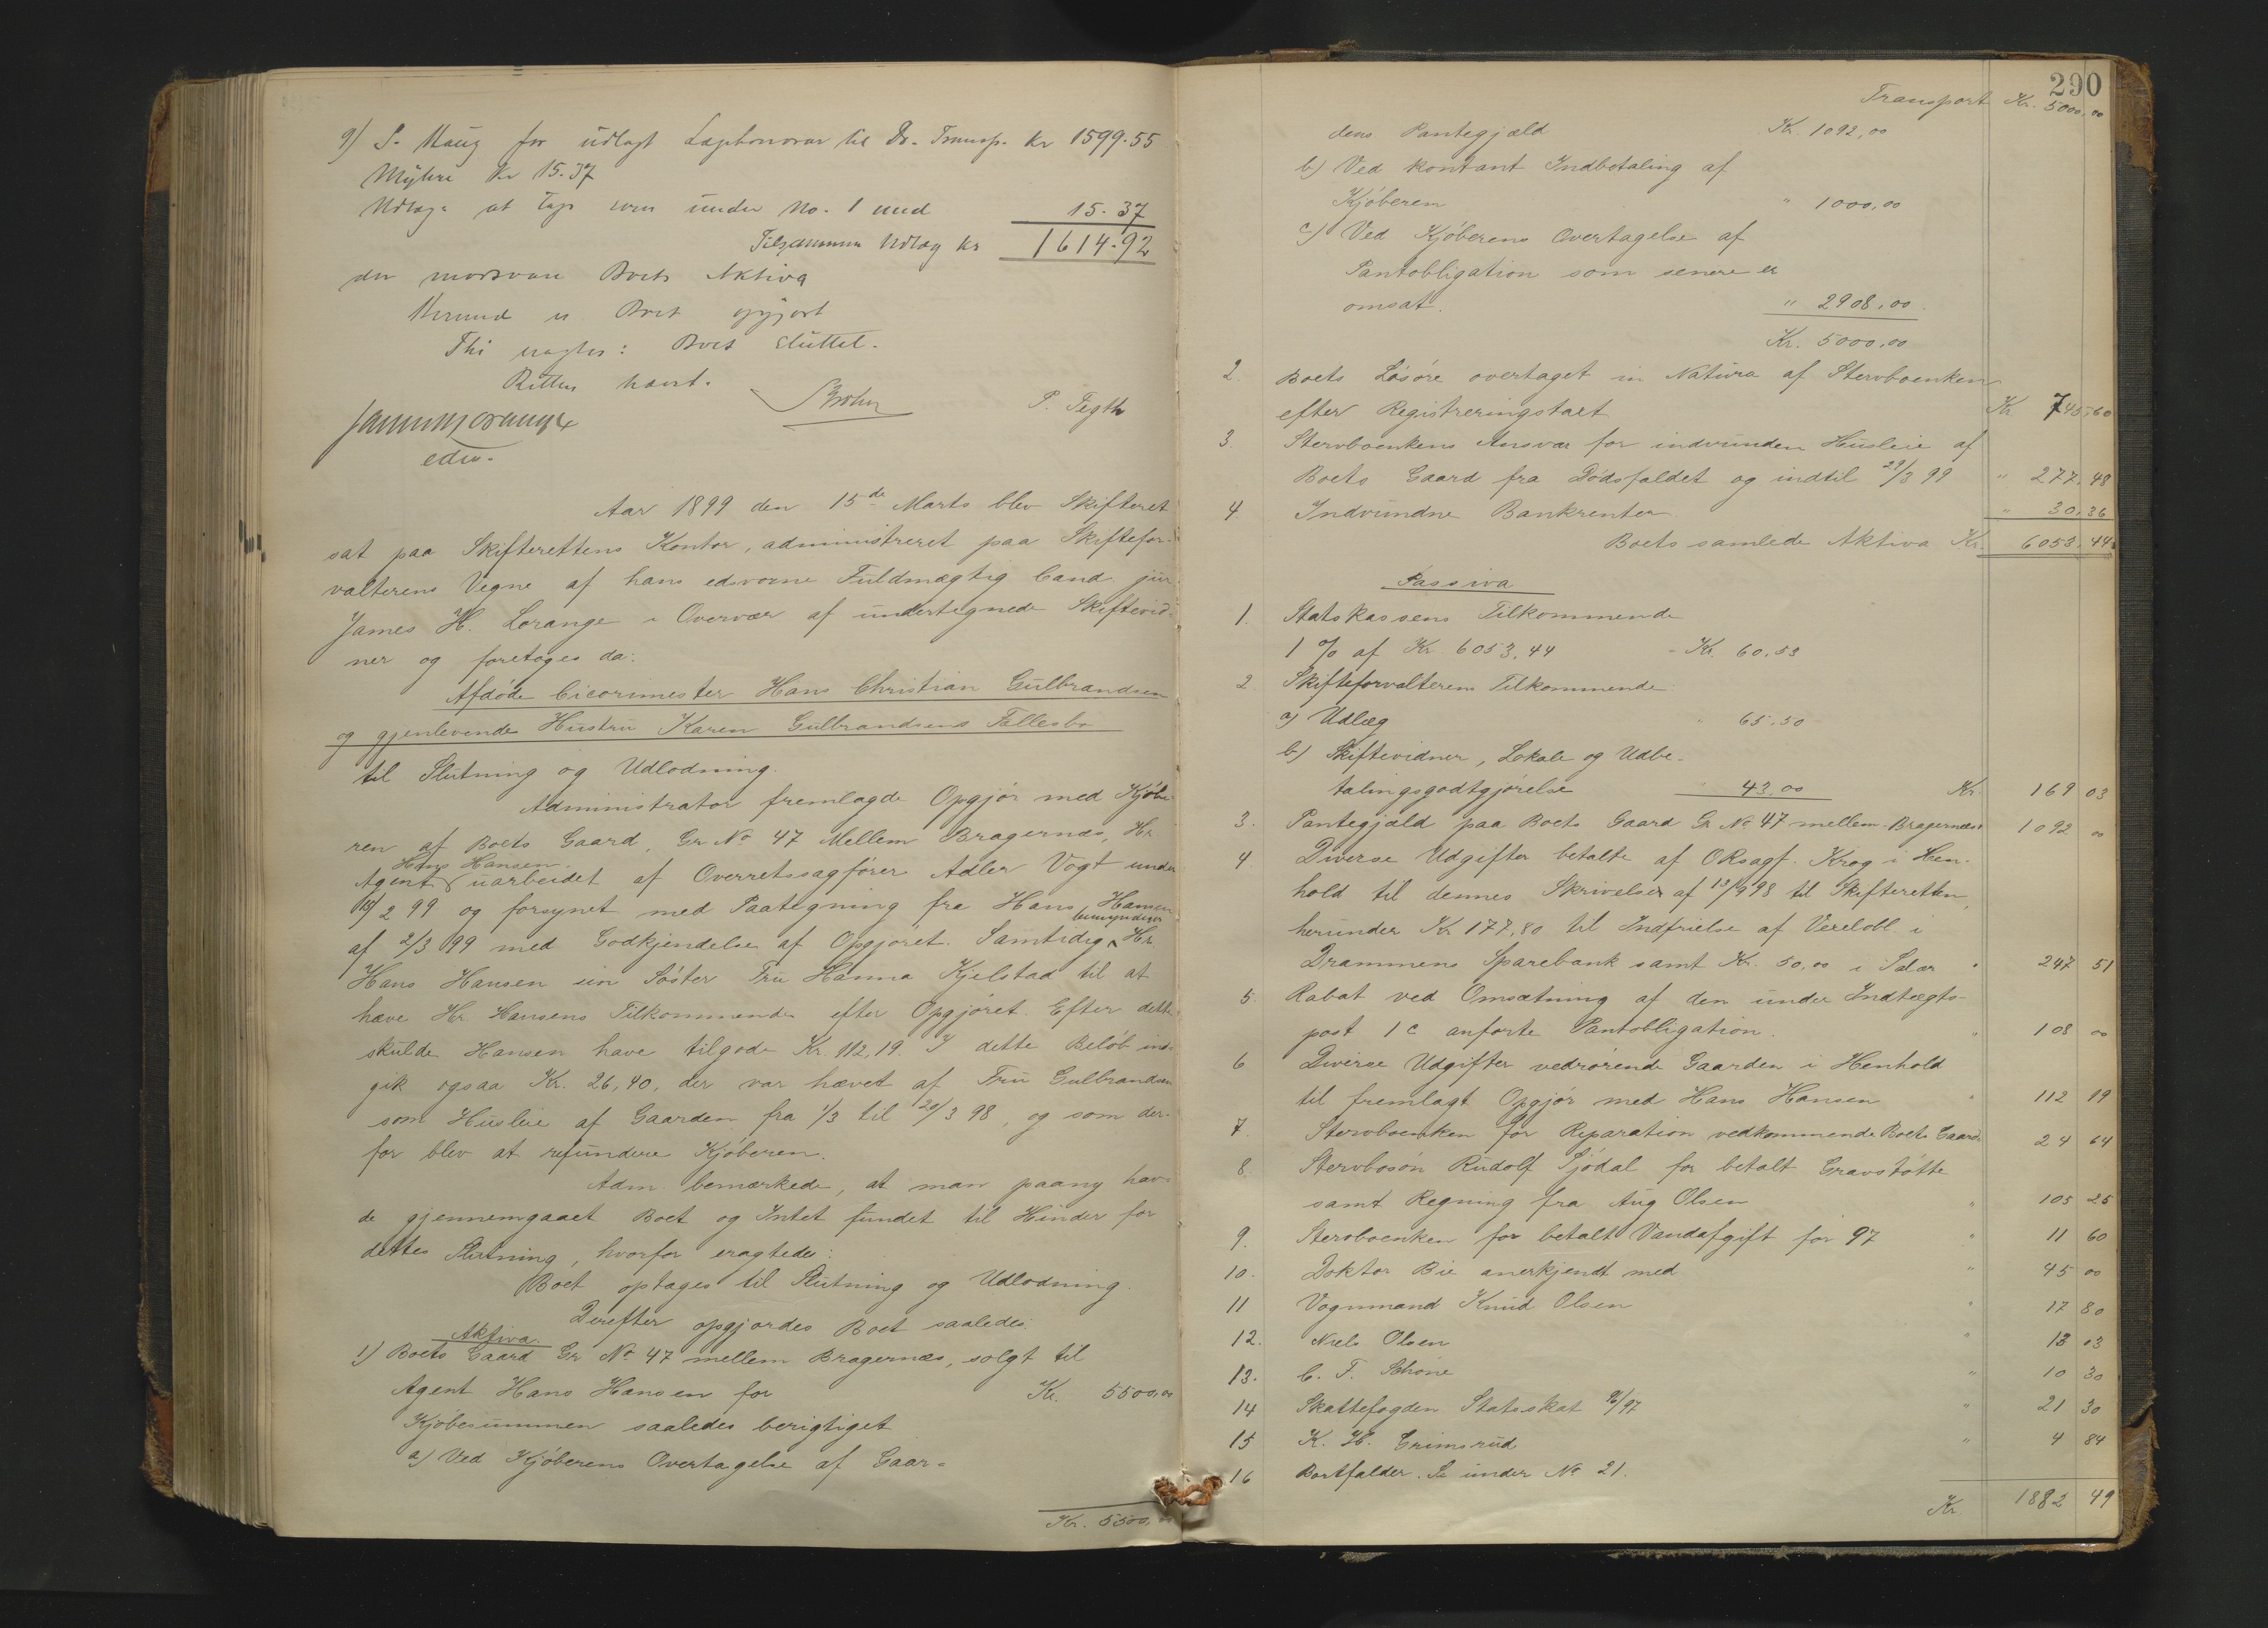 9) S. Haug for udlagt Lægehonorar til Dr. Transp. Kr 1599.55
Myhre Kr 15.37
Udlæg at tage som under No. 1 med 15.37
Tilsammen Udlæg Kr 1614.92
der modsvarer Boets Aktiva
Hermed er Boet opgjort
Thi eragtes: Boet sluttet.
Retten hævet.
James Lorange
edsv.
P. Tegth
Aar 1899 den 15de Marts blev Skifteret
sat paa Skifterettens Kontor, administreret paa Skiftefor-
valterens Vegne af hans edsvorne Fuldmægtig Cand. jur
James H. Lorange i Overvær af undertegnede Skiftevid-
ner og foretoges da:
Afdøde Cicorimester Hans Christian Gulbrandsen
og gjenlevende Hustru Karen Gulbrandsens Fællesbo
til Slutning og Udlodning.
Administrator fremlagde Opgjør med Kjøbe-
ren af Boets Gaard, Gr No 47 Mellem Bragernæs, Hr.
Hans Hansen.
Agent uarbeidet af Overretssagfører Adler Vogt under
2 99 og forsynet med Paategning fra Hans Hansen
bemyndiger
af 2/3 99 med Godkjendelse af Opgjøret. Samtidig Hr
Hans Hansen sin Søster Fru Hanna Kjelstad til at
hæve Hr. Hansens Tilkommende efter Opgjøret. Efter dette
skulde Hansen have tilgode Kr. 112,19. I dette Beløb ind-
gik ogsaa Kr. 26,40, der var hævet af Fru Gulbrandsen
som Husleie af Gaarden fra 1/3 til 20/3 98, og som der-
for blev at refundere Kjøberen.
Adm. bemærkede, at man paany hav-
de gjennemgaaet Boet og Intet fundet til Hinder for
dettes Slutning, hvorfor eragtedes:
Boet optages til Slutning og Udlodning.
Derefter opgjordes Boet saaledes:
Aktiva.
1) Boets Gaard Gr No 47 mellem Bragernæs, solgt til
Agent Hans Hansen for Kr. 5500,00
Kjøbesummen saaledes berigtiget
a) Ved Kjøberens Overtagelse af Gaar-
Kr. 5500,00
290
Transport Kr. 5000,00
dens Pantegjæld Kr. 1092,00
b) Ved kontant Indbetaling af
Kjøberen " 1000,00
c) Ved Kjøberens Overtagelse af
Pantobligation som senere er
omsat. " 2908,00
Kr. 5000,00
2. Boets Løsøre overtaget in Natura af Stervboenken
efter Registreringstaxt Kr 745,60
3 Stervboenkens Ansvar for indvunden Husleie af
Boets Gaard fra Dødsfaldet og indtil 29/3 99 " 277,48
4. Indvundne Bankrenter. " 30,36
Boets samlede Aktiva Kr. 6053,44
Passiva
1. Statskassens Tilkommende
1 % af Kr. 6053,44 - Kr. 60,53
2. Skifteforvalterens Tilkommende
a) Udlæg " 65,50
b) Skiftevidner, Lokale og Udbe-
talingsgodtgjørelse 43,00 Kr. 169 03
3. Pantegjæld paa Boets Gaard Gr No 47 mellem Bragernæs " 1092 00
4. Diverse Udgifter betalte af ORsagf. Krog i Hen-
hold til dennes Skrivelser af 13/9 98 til Skifteretten,
herunder Kr 177,80 til Indfrielse af Vexelobl. i
Drammens Sparebank samt Kr. 50,00 i Salær " 247 51
5. Rabat ved Omsætning af den under Indtægts-
post 1 c anførte Pantobligation. " 108 00
6 Diverse Udgifter vedrørende Gaarden i Henhold
til fremlagt Opgjør med Hans Hansen " 112 19
7. Stervboenken for Reparation vedkommende Boets Gaard 24 64
8. Stervbosøn Rudolf Sjødal for betalt Gravstøtte
samt Regning fra Aug Olsen " 105 25
9. Stervboenken for betalt Vandafgift for 97 " 11 60
10. Doktor Bie anerkjendt med " 45 00
11 Vognmand Knud Olsen " 17 80
12. Niels Olsen " 13 03
13. C. F. Schone " 10 30
14 Skattefogden Statsskat 96/97 " 21 30
15 K. H. Grimsrud " 4 84
16 Bortfalder. Se under No 21.
Kr. 1882 49